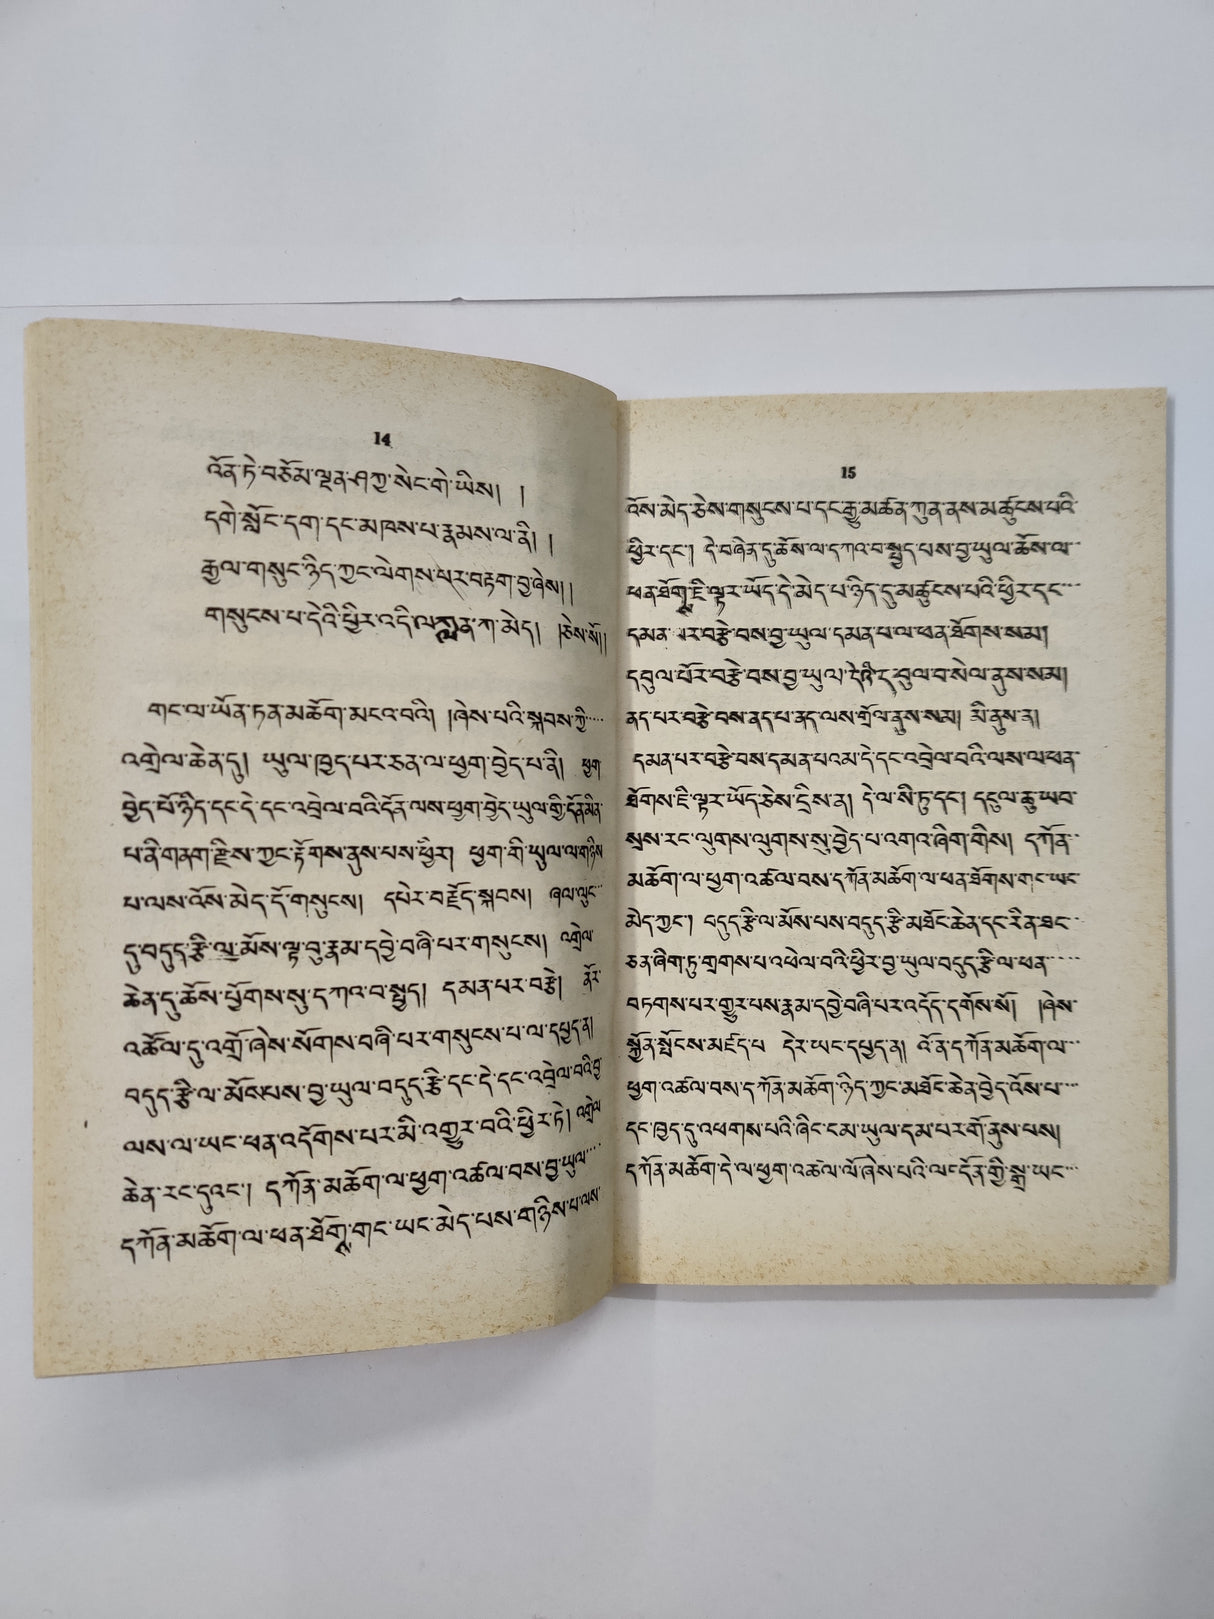 14
འོན་ཏེ་བཅོམ་ལྡན་ཤཀྱ་སེང་གེ་ཡིས། །
དགེ་སློང་དག་དང་མཁས་པ་རྣམས་ལ་ནི། །
རྒྱལ་གསུང་ཉིད་ཀྱང་ལེགས་པར་བརྟག་བྱ་ཞེས། །
གསུངས་པ་དེའི་ཕྱིར་འདི་ལ་ཀླན་ཀ་མེད། །ཅེས་སོ། །
གང་ལ་ཡོན་ཏན་མཆོག་མངའ་བའི། །ཞེས་པའི་སྐབས་ཀྱི....
འགྲེལ་ཆེན་དུ། ཡུལ་ཁྱད་པར་ཅན་ལ་ཕྱག་བྱེད་པ་ནི། ཕྱག
བྱེད་པོ་ཉིད་དང་དེ་དང་འབྲེལ་བའི་དོན་ལས་ཕྱག་བྱེད་ཡུལ་གྱི་དོན་མིན་
པ་ནི་གནག་རྫིས་ཀྱང་རྟོགས་ནུས་པས་ཕྱིར། ཕྱག་གི་ཡུལ་ལ་གཉིས
པ་ལས་འོས་མེད་དོ་གསུངས། དཔེར་བརྗོད་སྐབས། ཞལ་ལུང་..
དུ་བདུད་རྩི་ལ་མོས་ལྟ་བུ་རྣམ་དབྱེ་བཞི་པར་གསུངས། འགྲེལ་
ཆེན་དུ་ཆོས་ཕྱོགས་སུ་དཀའ་བ་སྤྱད། དམན་པར་བརྩེ། ནོར་
འཚོལ་དུ་འགྲོ་ཞེས་སོགས་བཞི་པར་གསུངས་པ་ལ་དཔྱད་ན།
བདུད་རྩི་ལ་མོསཔས་བྱ་ཡུལ་བདུད་རྩི་དང་དེ་དང་འབྲེལ་བའི་བྱ་
ལས་ལ་ཡང་ཕན་འདོགས་པར་མི་འགྱུར་བའི་ཕྱིར་ཏེ། འགྲེལ
ཆེན་རང་དུའང་། དཀོན་མཆོག་ལ་ཕྱག་འཚལ་བས་བྱ་ཡུལ....
དཀོན་མཆོག་ལ་ཕན་ཐོགྶ་གང་ཡང་མེད་པས་གཉིས་པ་ལས་
15
འོས་མེད་ཅེས་གསུངས་པ་དང་རྒྱུ་མཚན་ཀུན་ནས་མཚུངས་པའི་
ཕྱིར་དང་། དེ་བཞིན་དུ་ཆོས་ལ་དཀའ་བ་སྤྱད་པས་བྱ་ཡུལ་ཆོས་ལ་..
ཕན་ཐོགྶ་ཇི་ལྟར་ཡོད་དེ་མེད་པ་ཉིད་དུ་མཚུངས་པའི་ཕྱིར་དང་...
དམན་པར་བརྩེ་བས་བྱ་ཡུལ་དམན་པ་ལ་ཕན་ཐོགས་སམ།
དབུལ་པོར་བརྩེ་བས་བྱ་ཡུལ་དེའི་དབུལ་བ་སེལ་ནུས་སམ།
ནད་པར་བརྩེ་བས་ནད་པ་ནད་ལས་གྲོལ་ནུས་སམ། མི་ནུས་ན།
དམན་པར་བརྩེ་བས་དམན་པའམ་དེ་དང་འབྲེལ་བའི་ལས་ལ་ཕན་
ཐོགས་ཇི་ལྟར་ཡོད་ཅེས་དྲིས་ན། དེ་ལ་སི་ཏུ་དང་། དངུལ་ཆུ་ཡབ་
སྲས་རང་ལུགས་ལུགས་སུ་བྱེད་པ་འགའ་ཞིག་གིས། དཀོན་..
མཆོག་ལ་ཕྱག་འཚལ་བས་དཀོན་མཆོག་ལ་ཕན་ཐོགས་གང་ཡང་
མེད་ཀྱང་། བདུད་རྩི་ལ་མོས་པས་བདུད་རྩི་མཐོང་ཆེན་དང་རིན་ཐང་..
ཅན་ཞིག་ཏུ་གྲགས་པ་འཕེལ་བའི་ཕྱིར་བྱ་ཡུལ་བདུད་རྩི་ལ་ཕན་....
བཏགས་པར་གྱུར་པས་རྣམ་དབྱེ་བཞི་པར་འདོད་དགོས་སོ། །ཞེས་
སྐྱོན་སྤོངས་མཛད་པ དེར་ཡང་དཔྱད་ན། འོ་ན་དཀོན་མཆོག་ལ་..
ཕྱག་འཚལ་བས་དཀོན་མཆོག་ཉིད་ཀྱང་མཐོང་ཆེན་བྱེད་འོས་པ་...
དང་ཁྱད་དུ་འཕགས་པའི་ཞིང་ངམ་ཡུལ་དམ་པར་གོ་ནུས་པས།
དཀོན་མཆོག་དེ་ལ་ཕྱག་འཚལ་ལོ་ཞེས་པའི་ལ་དོན་གྱི་སྒྲ་ཡང་...